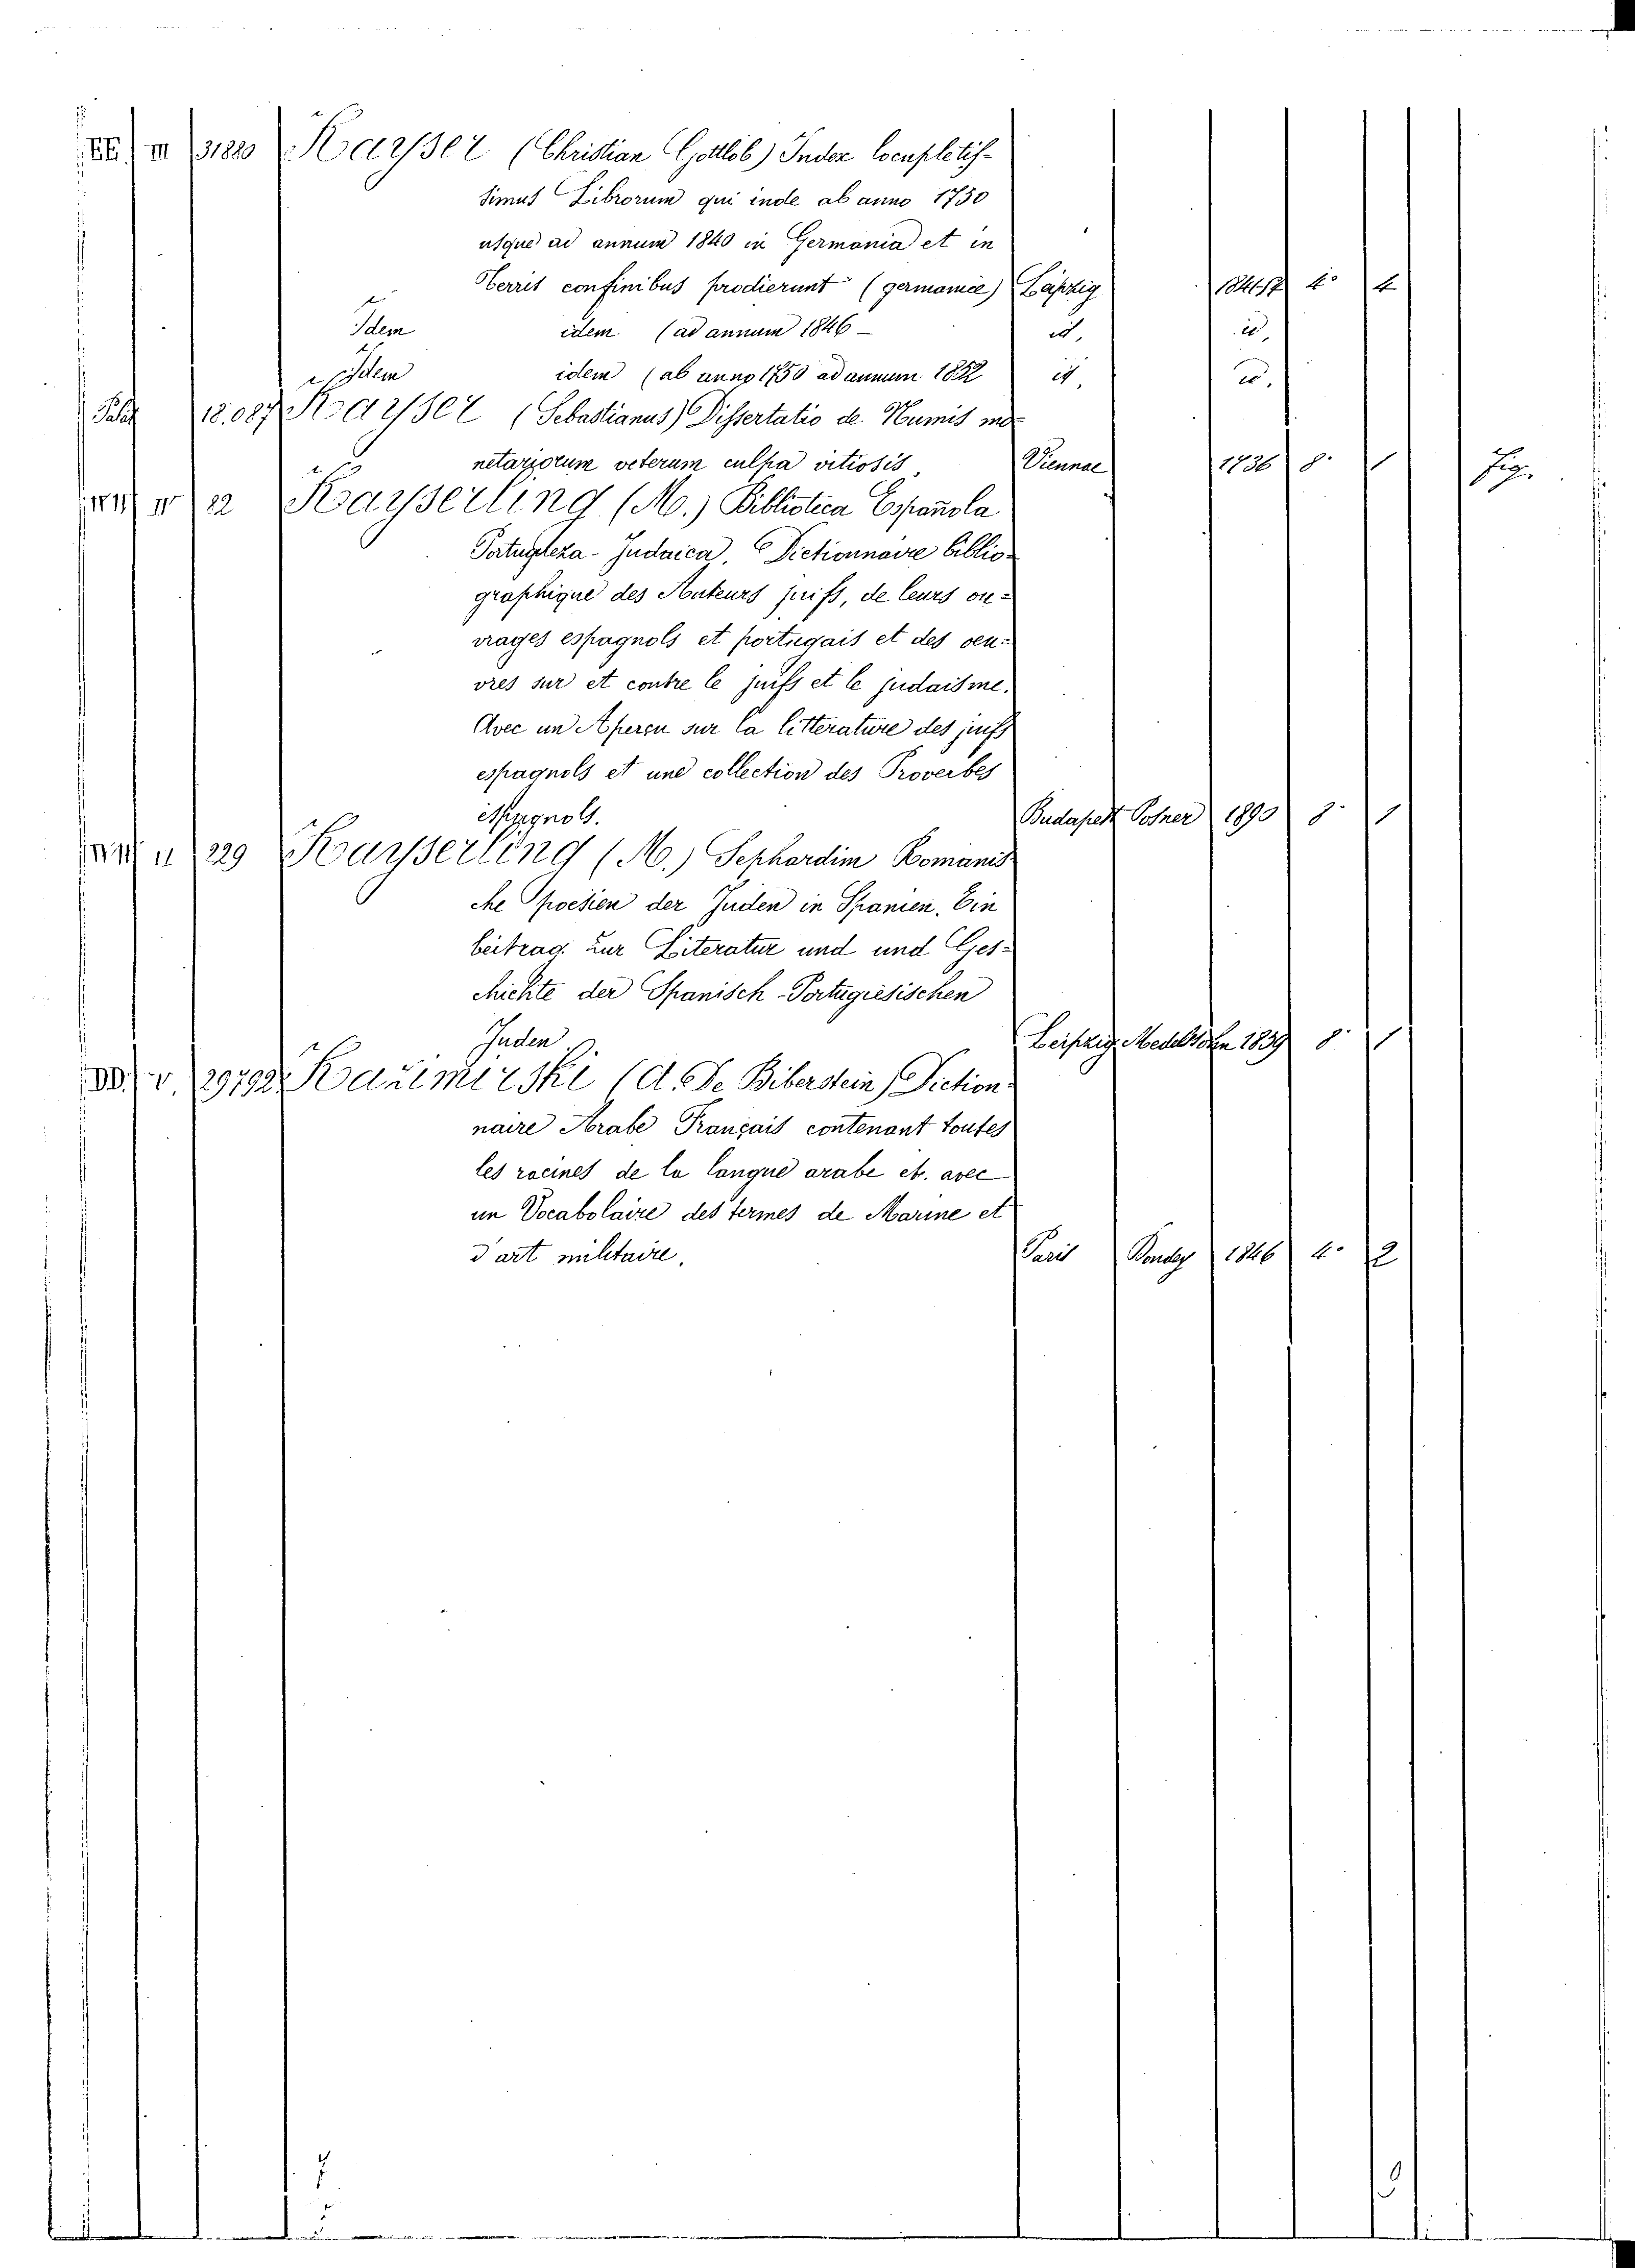 EE. III 31880 Kayser (Christian Gottlob) Index locupletis-
simus Librorum qui inde ab anno 1750
usque ad annum 1840 in Germania et in
Terris confinibus prodierunt (germanice) Läpzig 4º 4
Idem idem (ad annum 1846 – id, id,
Idem idem (ab anno 1750 ad annum 1852 id, id.
18.087 Kayser (Sebastianus) Dissertatio de Numis mo-
netariorum veterum culpa vitiosis, Viennae 1736 8º 1 Fig.
IV 22 Kayserling (M.) Biblioteca Española
Portugleza-Judaica. Dictionnaire biblio-
graphique des Auteurs juifs, de leurs ou-
vrages espagnols et portugais et des oeu-
vres sur et contre le juifs et le judaisme.
Avec un Aperçu sur la litterature des juifs
espagnols et une collection des Proverbes
espagnols. Budapest Posner 1890 8º 1
II 229 Kayserling (M.) Sephardim Romanis
che poesien der Juden in Spanien. Ein
beitrag zur Literatur und und Ges-
chichte der Spanisch-Portugiesischen
Juden. Leipzig Medelssohn 1859 8º 1
DD. V 29792 Kazimirski (A. De Biberstein) Diction-
naire Arabe Français contenant toutes
les racines de la langue arabe etc. avec
un Vocabolaire des termes de Marine et
d'art militaire. Paris 1846 4º 2
7